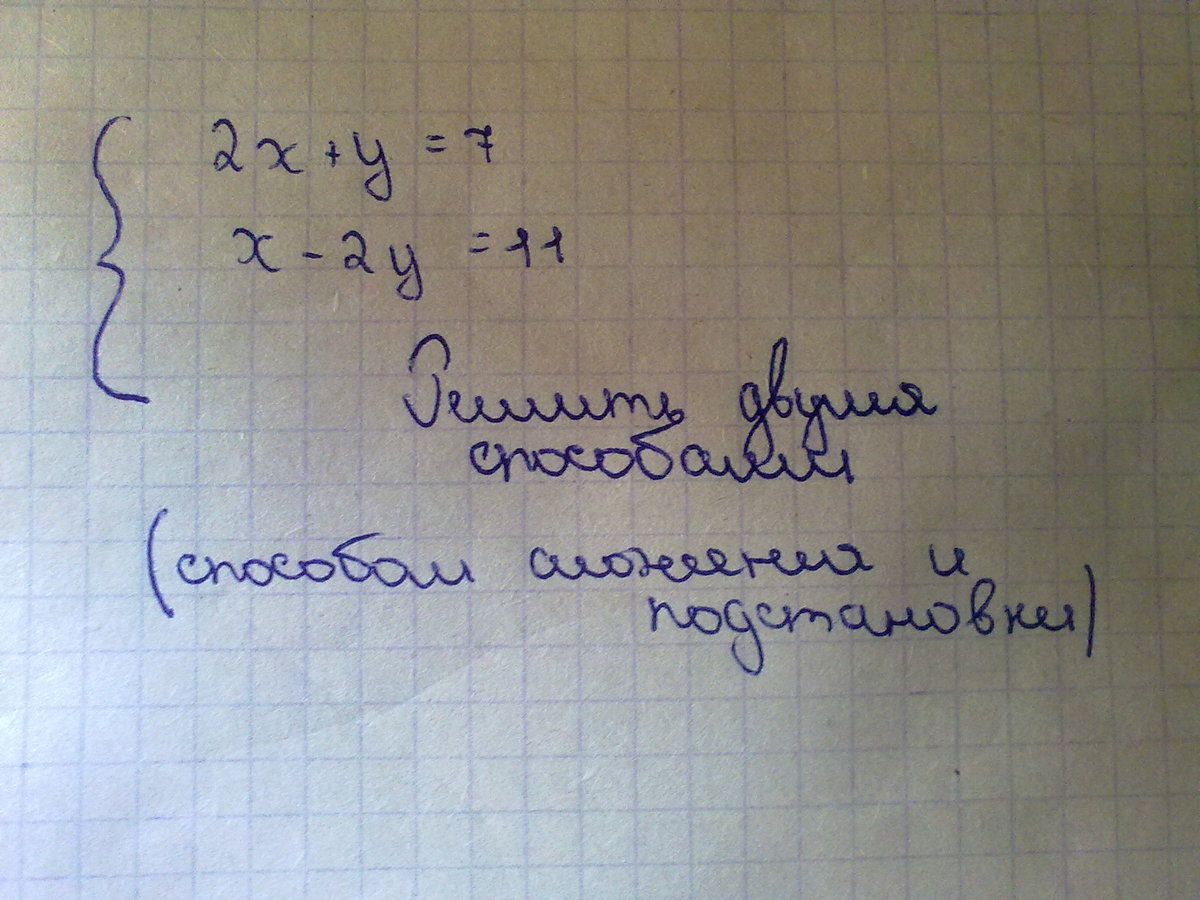 2x + y = 7
x - 2y = 11
Решить двумя
способами
(способом сложения и
подстановки)